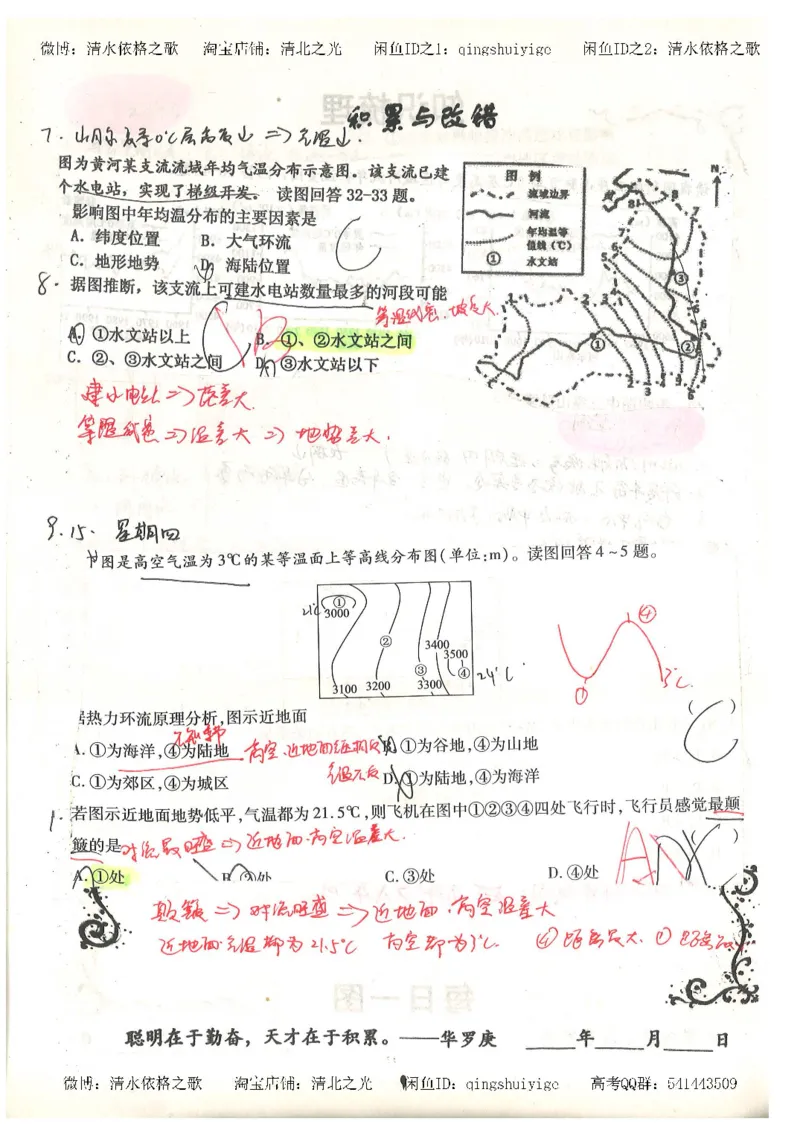 微博：清水依格之歌 淘宝店铺：清北之光 闲鱼ID之1：qingshuiyige 闲鱼ID之2：清水依格之歌
积累与改错
7.
图为黄河某支流流域年均气温分布示意图。该支流已建
个水电站，实现了梯级开发。 读图回答32-33题。
影响图中年均温分布的主要因素是
A. 纬度位置 B. 大气环流
C. 地形地势 D. 海陆位置
C
8. 据图推断，该支流上可建水电站数量最多的河段可能
等温线密，坡差大.
A. ①水文站以上 B. ①、②水文站之间
C. ②、③水文站之间 D. ③水文站以下
B
图 例
流域边界
河流
年均温等
值线(℃)
① 水文站
N
建水电站 => 落差大.
等温线密 => 温差大 => 地势差大.
9.15. 星期四
图是高空气温为3℃的某等温面上等高线分布图(单位:m)。读图回答4~5题。
① 3000
②
3400
3500
③ ④ 24℃
3100 3200 3300
④
① 3℃
居热力环流原理分析,图示近地面 ( )
C
A. ①为海洋,④为陆地 B. ①为谷地,④为山地
高空.近地面
C. ①为郊区,④为城区 D. ①为陆地,④为海洋
若图示近地面地势低平,气温都为21.5℃,则飞机在图中①②③④四处飞行时,飞行员感觉最颠
簸的是 ( )
对流最旺盛 => 近地面.高空温差大.
A
A. ①处 B. ②处 C. ③处 D. ④处
颠簸 => 对流旺盛 => 近地面.高空温差大
近地面气温都为21.5℃ 高空都为3℃. ④距离最大. ①距离
聪明在于勤奋，天才在于积累。——华罗庚 年 月 日
微博：清水依格之歌 淘宝店铺：清北之光 闲鱼ID：qingshuiyige 高考QQ群：541443509